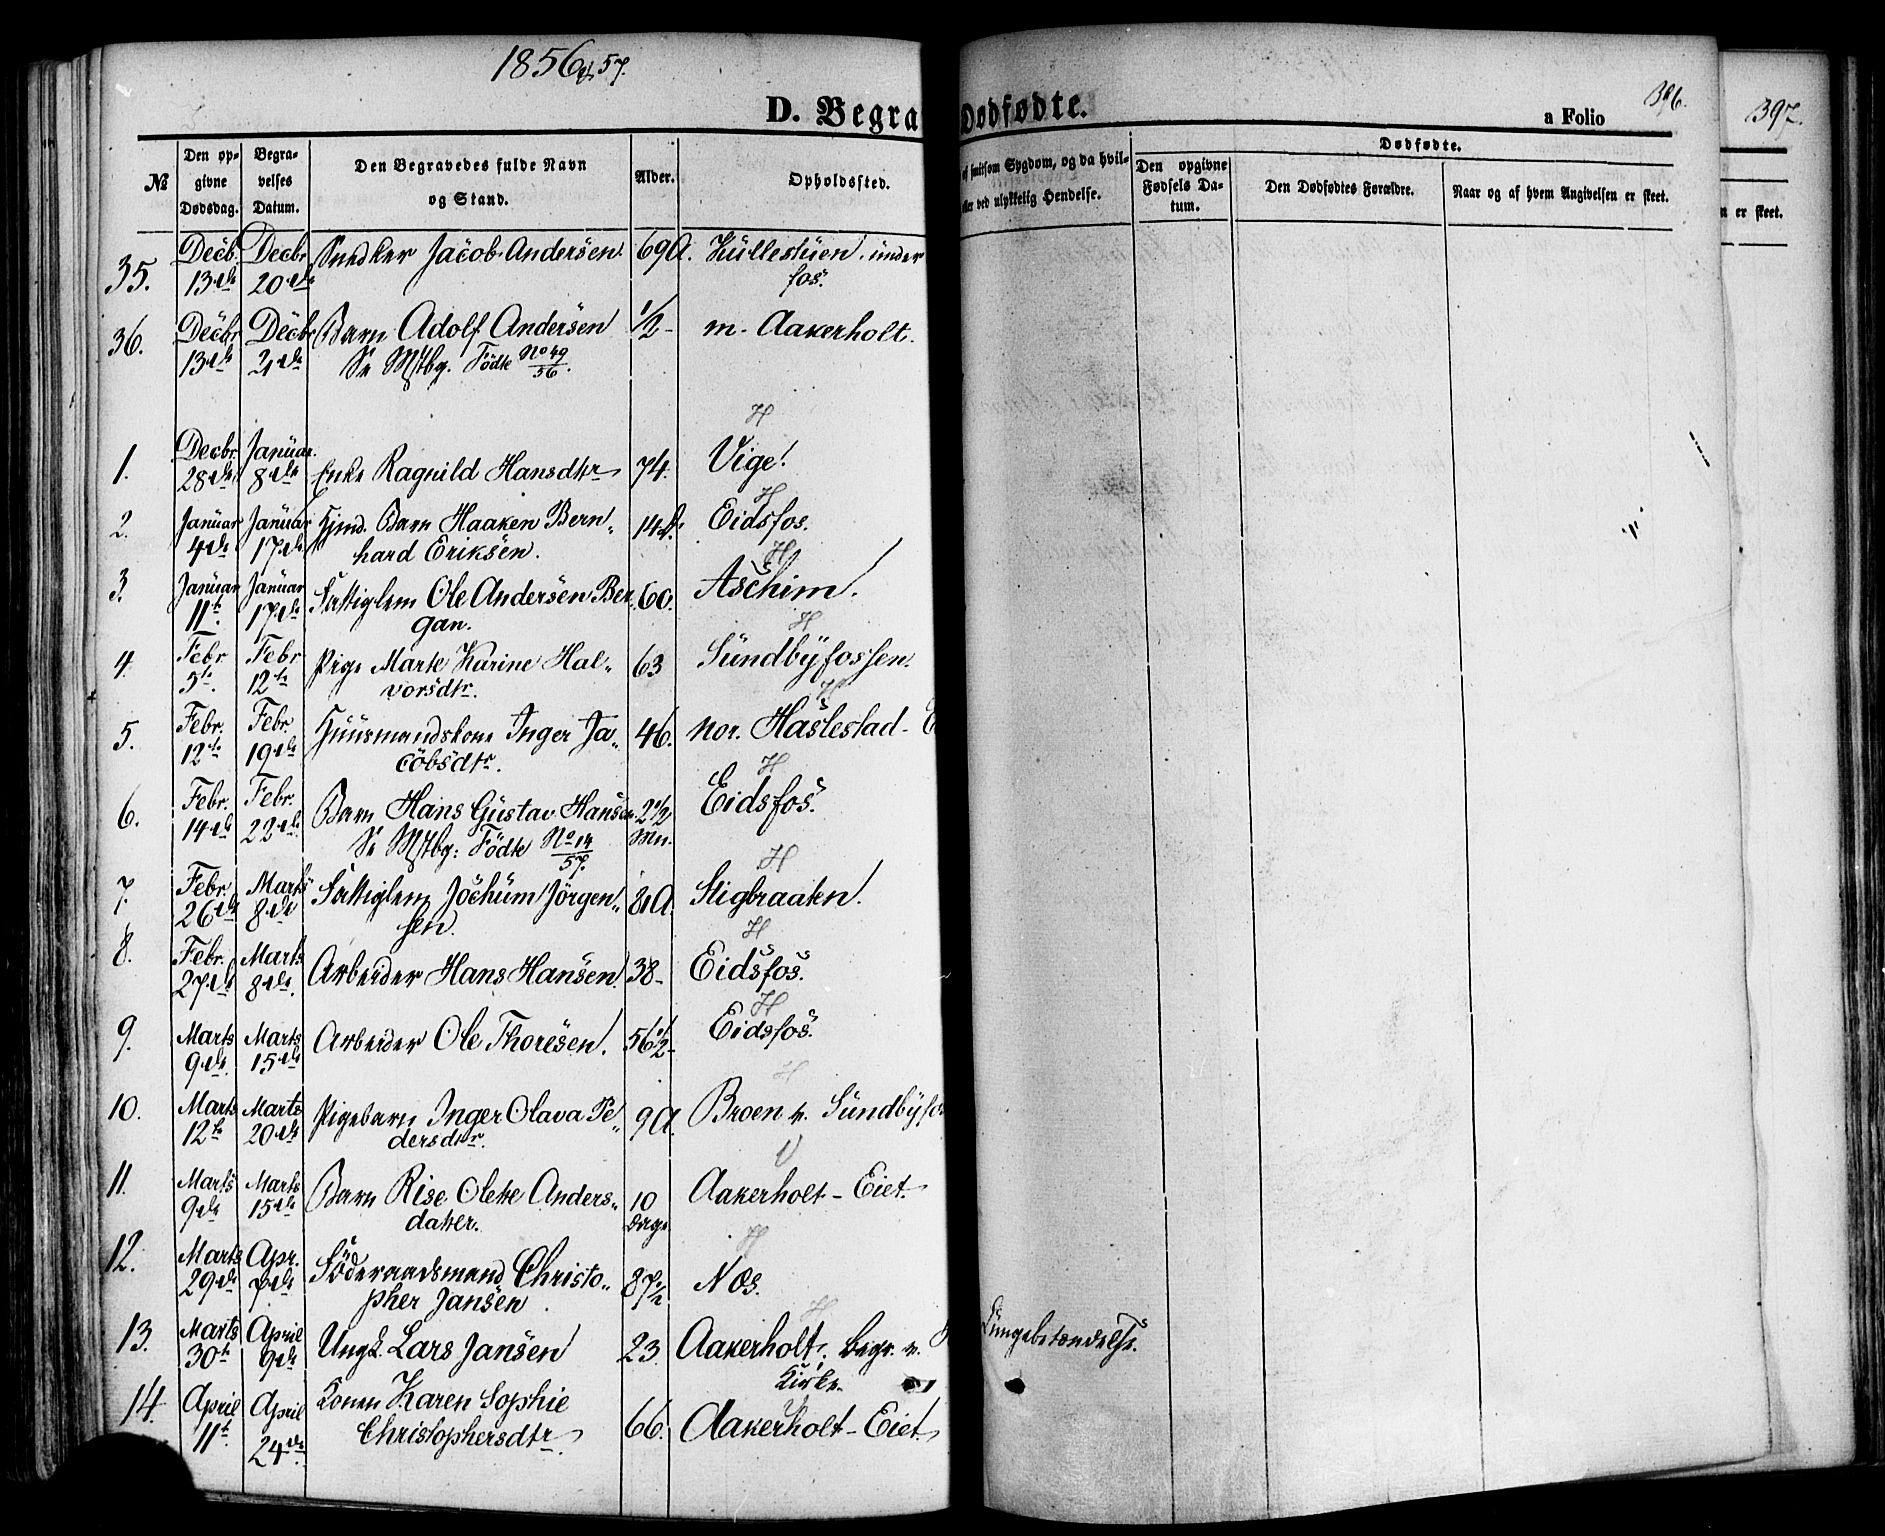 1856 & 57.
D. Begra
Dødfødte.
a Folio
396.
397.
No
Den op-
givne
Dødsdag.
Begra-
velses
Datum.
Den Begravedes fulde Navn
og Stand.
Alder.
Opholdssted.
af smitsom Sygdom, og da hvil-
eller ved ulykkelig Hendelse.
Dødfødte.
Den opgivne
Fødsels Da-
tum.
Den Dødfødtes Forældre.
Naar og af hvem Angivelsen er skeet.
n er skeet.
35. Decb. Decbr Snedker Jacob Andersen 69 A. Küllestüen under
13de 20de fos.
36. Decbr Decbr Barn Adolf Andersen 1/2 - m. Aakerholt.
13de 21de Se Mstbg. Födte No 49
56.
H
1. Decbr. Januar Enke Ragnild Hansdtr 74. Vige.
28de 8de
H
2. Januar Januar Hjmd. Barn Haaken Bern- 14 D. Eidsfos.
4de 17de hard Eriksen.
H
3. Januar Januar Fattiglem Ole Andersen Ber 60. Aschim.
11te 17de gan.
H
4. Febr Febr Pige Marte Karine Hal- 63 Sündbyfossen.
5te. 12te vorsdtr.
H
5. Febr. Febr. Huusmandskone Inger Ja- 46. nor. Haslestad - E
12te 19de cobsdtr.
H
6. Febr. Febr. Barn Hans Gustav Hansen 2 1/2 Eidsfos.
14de 22de Se Mstbg: Födte No 14 Mn.
57.
H
7. Febr. Marts Fattiglem Jochum Jörgen- 81 A. Stigbraaten.
26de 8de sen.
H
8. Febr. Marts Arbeider Hans Hansen 38 - Eidsfos.
27de 8de.
H
9. Marts Marts Arbeider Ole Thoresen. 56 1/2 - Eidsfos.
9de. 15de
H
10. Marts Marts Pigebarn Inger Olava Pe- 9 A. Broen v. Sündbyfo
12te 20de dersdtr.
V
11. Marts Marts Barn Rise Olete Anders- 10 Aakerholt - Eiet.
9de 15de datter. Dage
H
12. Marts Apr. Föderaadsmand Christo- 87 1/2 Næs.
29de 7de pher Jansen.
H
13. Marts April Ungk. Lars Jansen 23. Aakerholt. begr. v. Lungebetændelse.
30te 9de Kirke.
14. April April Konen Karen Sophie 66. Aakerholt - Eiet
11te. 24de Christophersdtr.